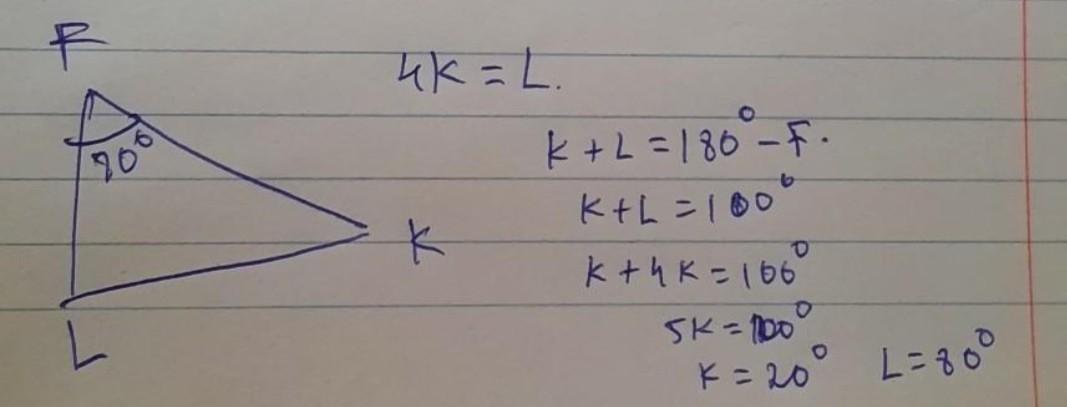 F
4K = L.
80°
K + L = 180° - F.
K + L = 100°
K
K + 4K = 100°
5K = 100°
L
K = 20° L = 80°